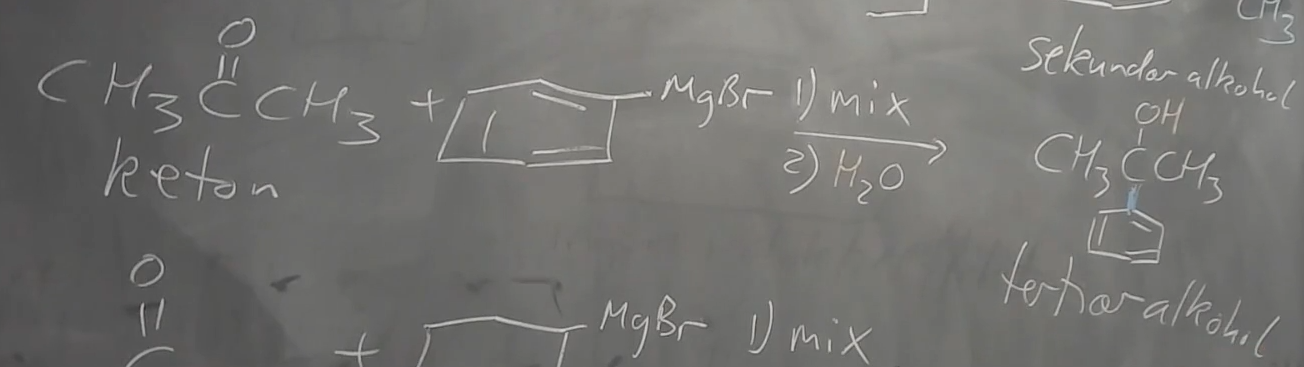 CH3
sekundær alkohol
O
CH3CCH3 + MgBr 1) mix
2) H2O
keton
OH
CH3CCH3
tertiær alkohol
O
C + MgBr 1) mix